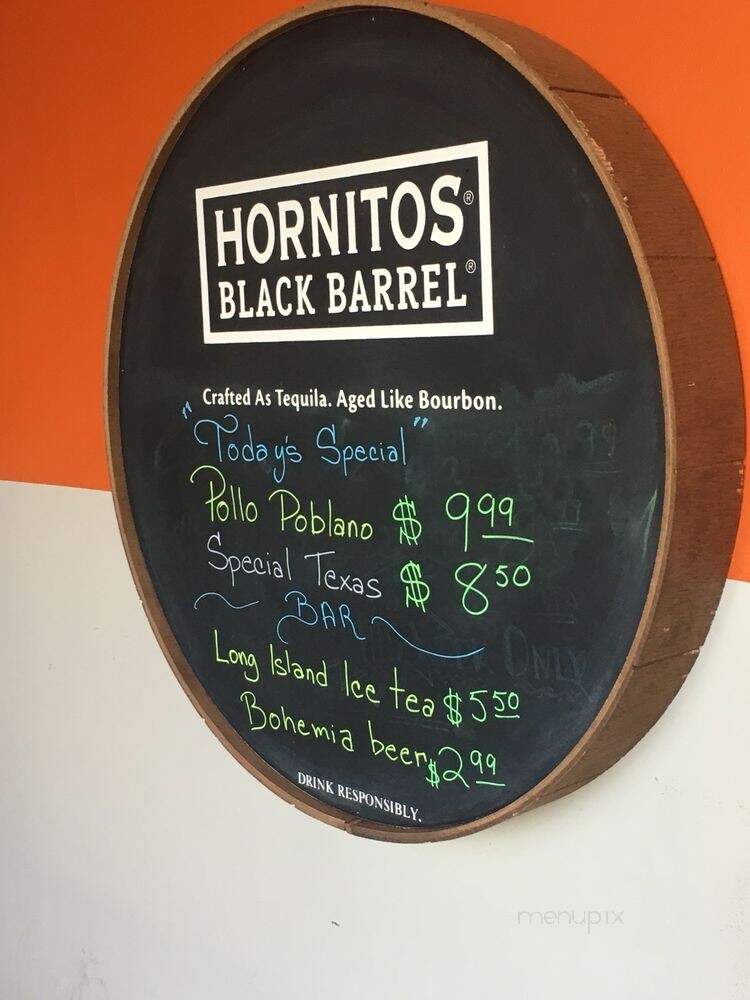 HORNITOS®
BLACK BARREL®
Crafted As Tequila. Aged Like Bourbon.
"Today's Special"
Pollo Poblano $ 9 99
Special Texas $ 8 50
~ BAR ~
Long Island Ice tea $5 50
Bohemia beer $2 99
DRINK RESPONSIBLY.
ONLY
menupix